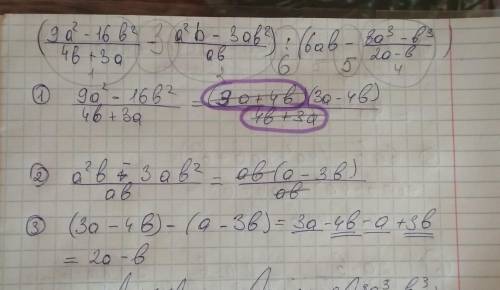 ((9a² - 16b²)/(4b + 3a) - (a²b - 3ab²)/ab) : (6ab - (8a³ - b³)/(2a - b))
1 3 2 6 5 4
① (9a² - 16b²)/(4b + 3a) = (3a + 4b)(3a - 4b)/(4b + 3a)
② (a²b - 3ab²)/ab = ab(a - 3b)/ab
③ (3a - 4b) - (a - 3b) = 3a - 4b - a + 3b
= 2a - b